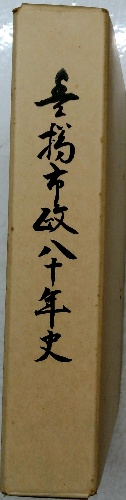 豊橋市政八十年史